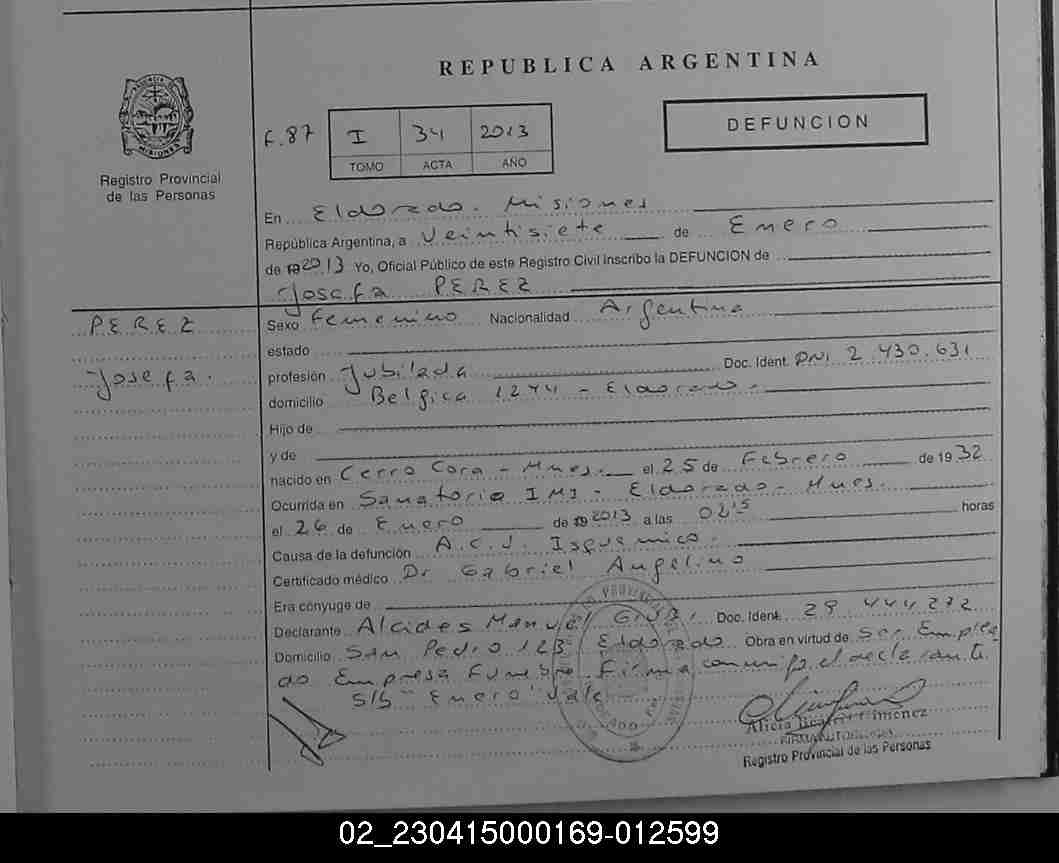 REPUBLICA ARGENTINA
Registro Provincial
de las Personas
F. 87 I 34 2013
TOMO ACTA AÑO
DEFUNCION
En Eldorado. Misiones
República Argentina, a Veintisiete de Enero
de 2013 Yo, Oficial Público de este Registro Civil inscribo la DEFUNCION de
Josefa PEREZ
PEREZ
Josefa.
Sexo Femenino Nacionalidad Argentina
estado
profesión Jubilada Doc. Ident. DNI 2.430.631
domicilio Belgica 1244 - Eldorado.
Hijo de
y de
nacido en Cerro Cora - Mnes. el 25 de Febrero de 1932
Ocurrida en Sanatorio IMI - Eldorado - Mnes.
el 26 de Enero de 2013 a las 02:15 horas
Causa de la defunción A.C.V. Isquemico.
Certificado médico Dr Gabriel Angelino
Era cónyuge de
Declarante Alcides Manuel Doc. Ident. 29 444 272
Domicilio San Pedro 123 Eldorado Obra en virtud de Ser Emplea
do Empresa Funebre. Firma conmigo el declarante.
S/b "Enero" Vale
Alicia Beatriz Gimenez
Registro Provincial de las Personas
02_230415000169-012599